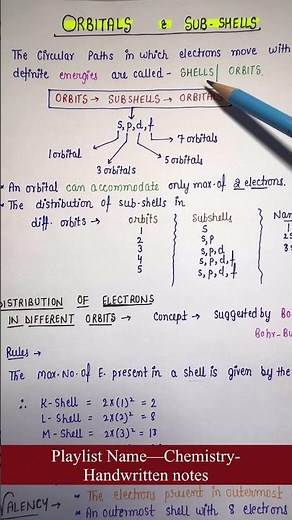 ORBITALS & SUB-SHELLS
The Circular Paths in which electrons move with
definite energies are called - SHELLS/ ORBITS.
ORBITS → SUBSHELLS → ORBITALS
s, p, d, f
7 orbitals
1 orbital
5 orbitals
3 orbitals
• An orbital can accommodate only max. of 2 electrons.
• The distribution of sub-shells in
diff. orbits → orbits Subshells Na
1 s 1
2 s, p 2s
3 s, p, d 3s
4 s, p, d, f
5 s, p, d, f
DISTRIBUTION OF ELECTRONS
IN DIFFERENT ORBITS → Concept → Suggested by Bo
Bohr-Bu
Rules →
The max. No. of E. present in a shell is given by the
∴ K-Shell = 2x(1)² = 2
L-Shell = 2x(2)² = 8
M-Shell = 2x(3)² = 18
Playlist Name—Chemistry-
Handwritten notes
VALENCY → • The electrons present in outermost
• An outermost shell with 8 electrons